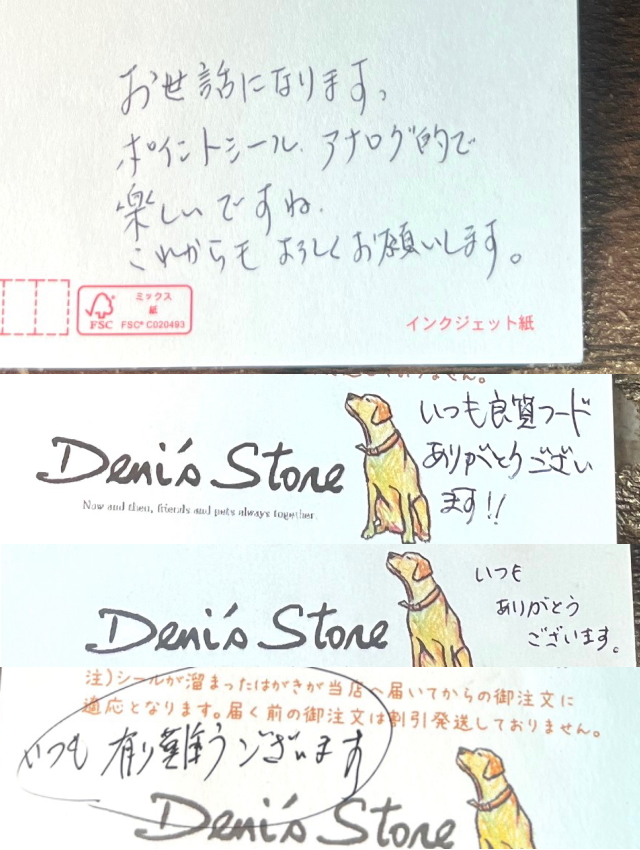 お世話になります、
ポイントシール、アナログ的で
楽しいですね、
これからも よろしくお願いします。
ミックス
紙
FSC
FSC® C020493
インクジェット紙
ありません。
いつも良質フード
ありがとうござい
ます!!
Deni's Store
Now and then, friends and pets always together.
いつも
ありがとう
ございます。
Deni's Store
注)シールが溜まったはがきが当店へ届いてからの御注文に
適応となります。届く前の御注文は割引発送しておりません。
いつも 有り難うございます
Deni's Store